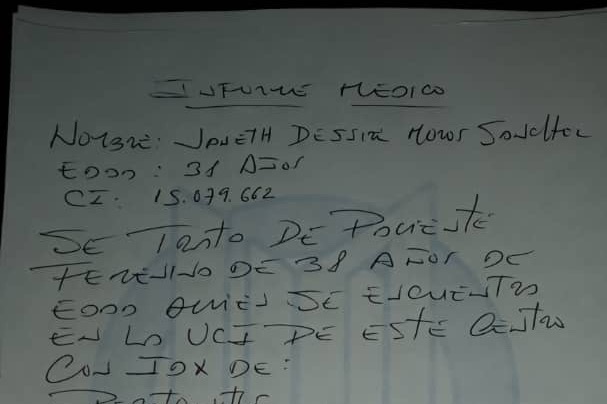 INFORME MEDICO
NOMBRE: JANETH DESSIRE MOROS SANCHEZ
EDAD: 38 AÑOS
CI: 15.079.662
SE TRATA DE PACIENTE
FEMENINO DE 38 AÑOS DE
EDAD QUIEN SE ENCUENTRA
EN LA UCI DE ESTE CENTRO
CON IDX DE: